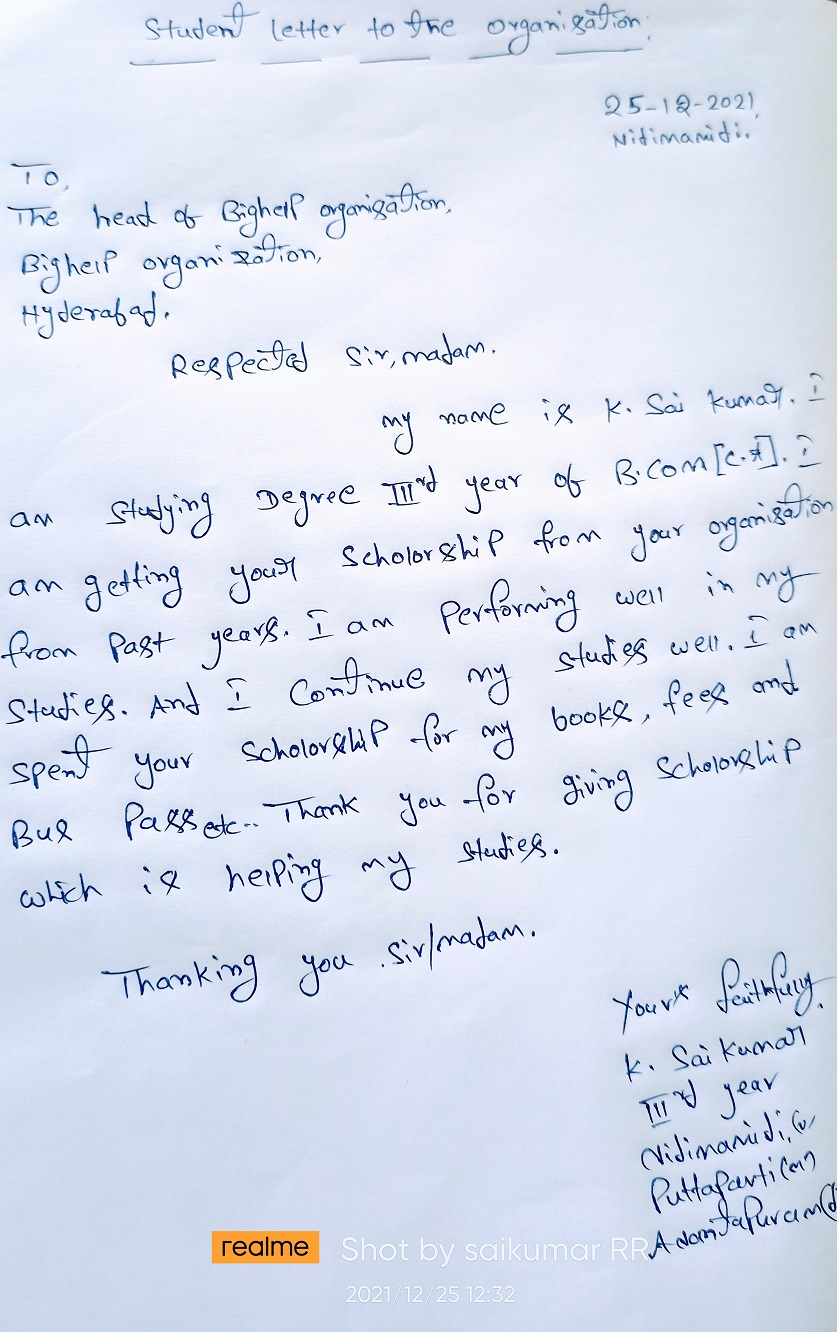 Student letter to the organisation.
25-12-2021,
Nidimamidi.
To,
The head of Bighelp organization,
Bighelp organization,
Hyderabad.
Respected Sir, madam.
my name is K. Sai Kumar. I
am studying Degree IIIrd year of B.com [C.A]. I
am getting your Scholorship from your organization
from Past years. I am Performing well in my
Studies. And I Continue my studies well. I am
spent your Scholorship for my books, fees and
Bus Pass etc.. Thank you for giving Scholorship
which is helping my studies.
Thanking you sir/madam.
Yours faithfully,
K. Sai Kumar
IIIrd year
Nidimamidi,(v)
Puttaparti(m)
Anantapuram(d
realme Shot by saikumar RR
2021/12/25 12:32